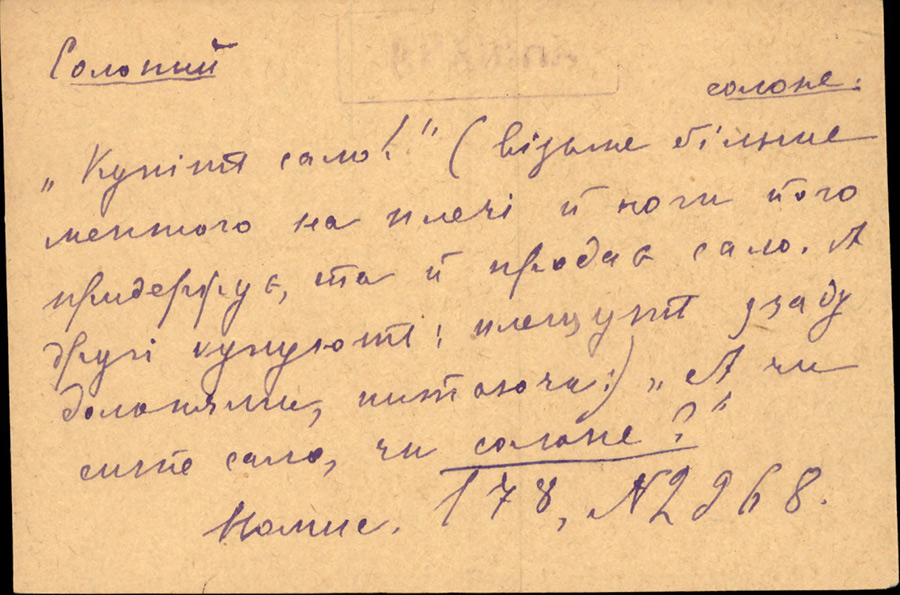 Солоний
солоне.
„Купіт сало!" (візьме більше
меншого на плечі й ноги його
придержує, та й продає сало. А
другі купуют: плещут ззаду
долонями, питаючи:) „А чи
сите сало, чи солоне?"
Номис. 178, №2968.